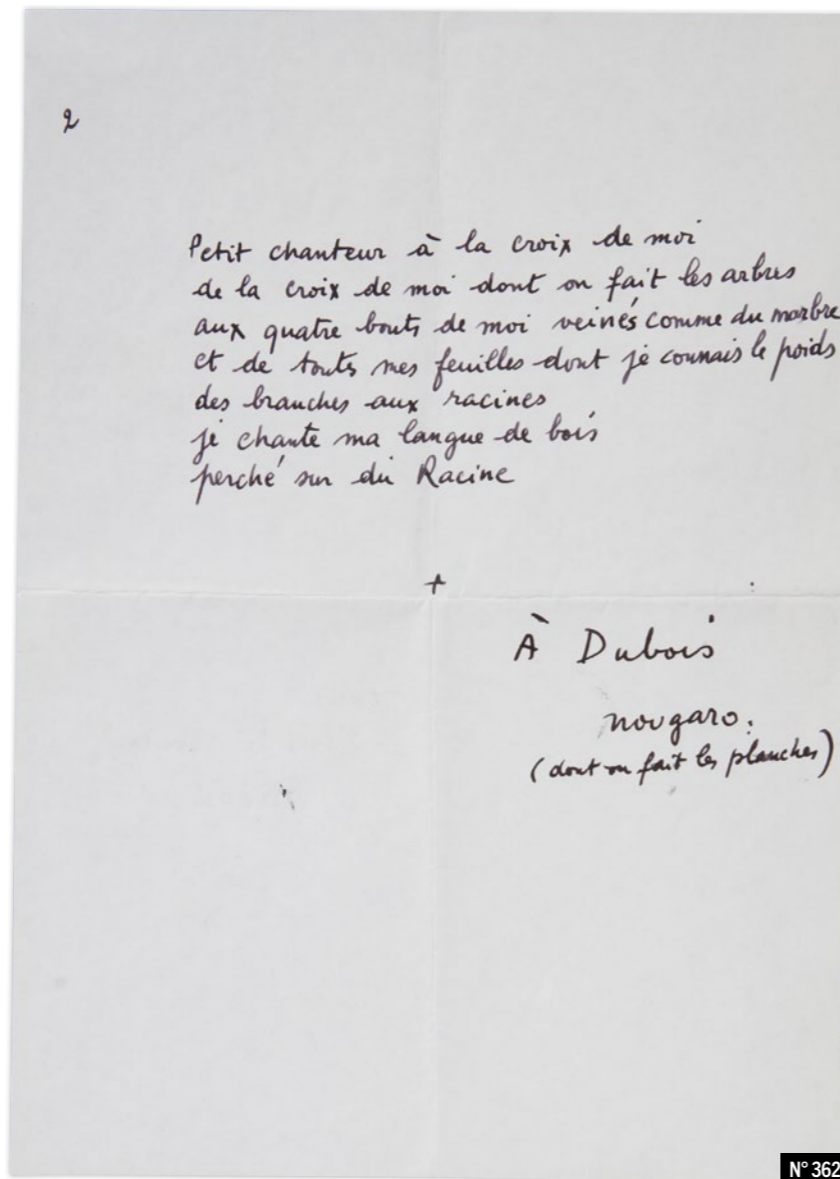 2
Petit chanteur à la croix de moi
de la croix de moi dont on fait les arbres
aux quatre bouts de moi veinés comme du marbre
et de toutes mes feuilles dont je connais le poids
des branches aux racines
je chante ma langue de bois
perché sur du Racine
+
À Dubois
nougaro.
(dont on fait les planches)
N° 362